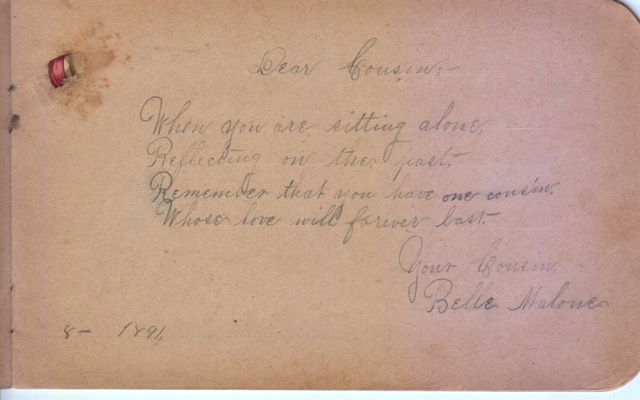 Dear Cousin,-
When you are sitting alone,
Reflecting on the past-
Remember that you have one cousin,
Whose love will forever last-
Your Cousin,
Belle Malone
8- 1891,